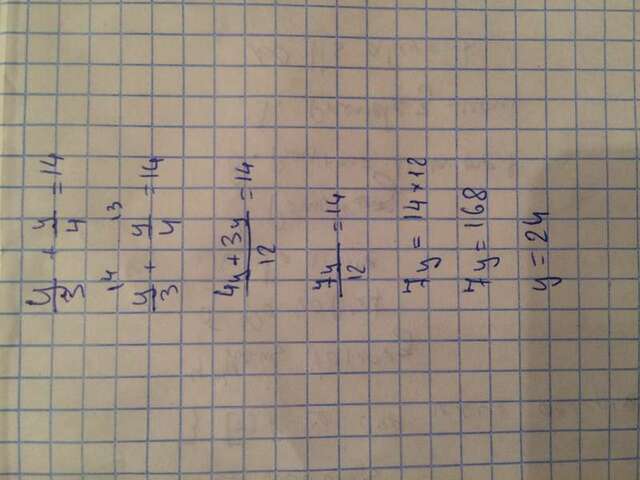 y/3 + y/4 = 14
y/3 |4 + y/4 |3 = 14
4y + 3y/12 = 14
7y/12 = 14
7y = 14 × 12
7y = 168
y = 24